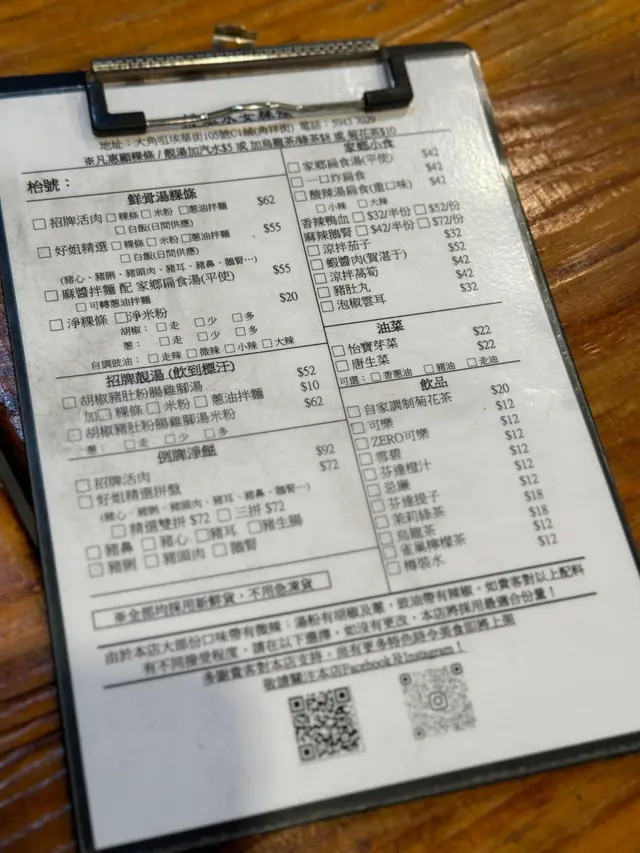 地址：大角咀埃華街105號C1舖(角祥街) 電話：5943 7029
※凡惠顧粿條 / 靚湯加汽水$5 或 加烏龍茶/綠茶$8 或 菊花茶$10
枱號：
鮮骨湯粿條
□ 招牌活肉 □ 粿條 □ 米粉 □ 葱油拌麵 $62
□ 白飯(日間供應)
□ 好姐精選 □ 粿條 □ 米粉 □ 葱油拌麵 $55
□ 白飯(日間供應)
(豬心、豬脷、豬頭肉、豬耳、豬鼻、鵝腎…)
□ 麻醬拌麵 配 家鄉扁食湯(平使) $55
□ 可轉葱油拌麵
□ 淨粿條 □ 淨米粉 $20
胡椒： □ 走 □ 少 □ 多
葱： □ 走 □ 少 □ 多
自調豉油： □ 走辣 □ 微辣 □ 小辣 □ 大辣
招牌靚湯 (飲到標汗)
□ 胡椒豬肚粉腸雞腳湯 $52
加 □ 粿條 □ 米粉 □ 葱油拌麵 $10
□ 胡椒豬肚粉腸雞腳湯米粉 $62
葱： □ 走 □ 少 □ 多
例牌淨餸
□ 招牌活肉 $92
□ 好姐精選拼盤 $72
(豬心、豬脷、豬頭肉、豬耳、豬鼻、鵝腎…)
□ 精選雙拼 $72 □ 三拼 $72
□ 豬鼻 □ 豬心 □ 豬耳 □ 豬生腸
□ 豬脷 □ 豬頭肉 □ 鵝腎
家鄉小食
□ 家鄉扁食湯(平使) $42
□ 一口炸扁食 $42
□ 酸辣湯扁食(重口味) $42
□ 小辣 □ 大辣
香辣鴨血 □ $32/半份 □ $52/份
麻辣鵝腎 □ $42/半份 □ $72/份
□ 涼拌茄子 $32
□ 蝦醬肉(賀湛于) $52
□ 涼拌萵筍 $42
□ 豬肚丸 $42
□ 泡椒雲耳 $32
油菜
□ 怡寶芽菜 $22
□ 唐生菜 $22
可選： □ 香葱油 □ 豬油 □ 走油
飲品
□ 自家調制菊花茶 $20
□ 可樂 $12
□ ZERO可樂 $12
□ 雪碧 $12
□ 芬達橙汁 $12
□ 忌廉 $12
□ 芬達提子 $12
□ 茉莉綠茶 $18
□ 烏龍茶 $18
□ 雀巢檸檬茶 $12
□ 樽裝水 $12
※全部均採用新鮮貨，不用急凍貨
由於本店大部份口味帶有微辣：湯粉有胡椒及葱，豉油帶有辣椒，如貴客對以上配料
有不同接受程度，請在以下選擇，如沒有更改，本店將採用最適合份量！
多謝貴客對本店支持，尚有更多特色時令美食即將上架
敬請關注本店Facebook及Instagram！